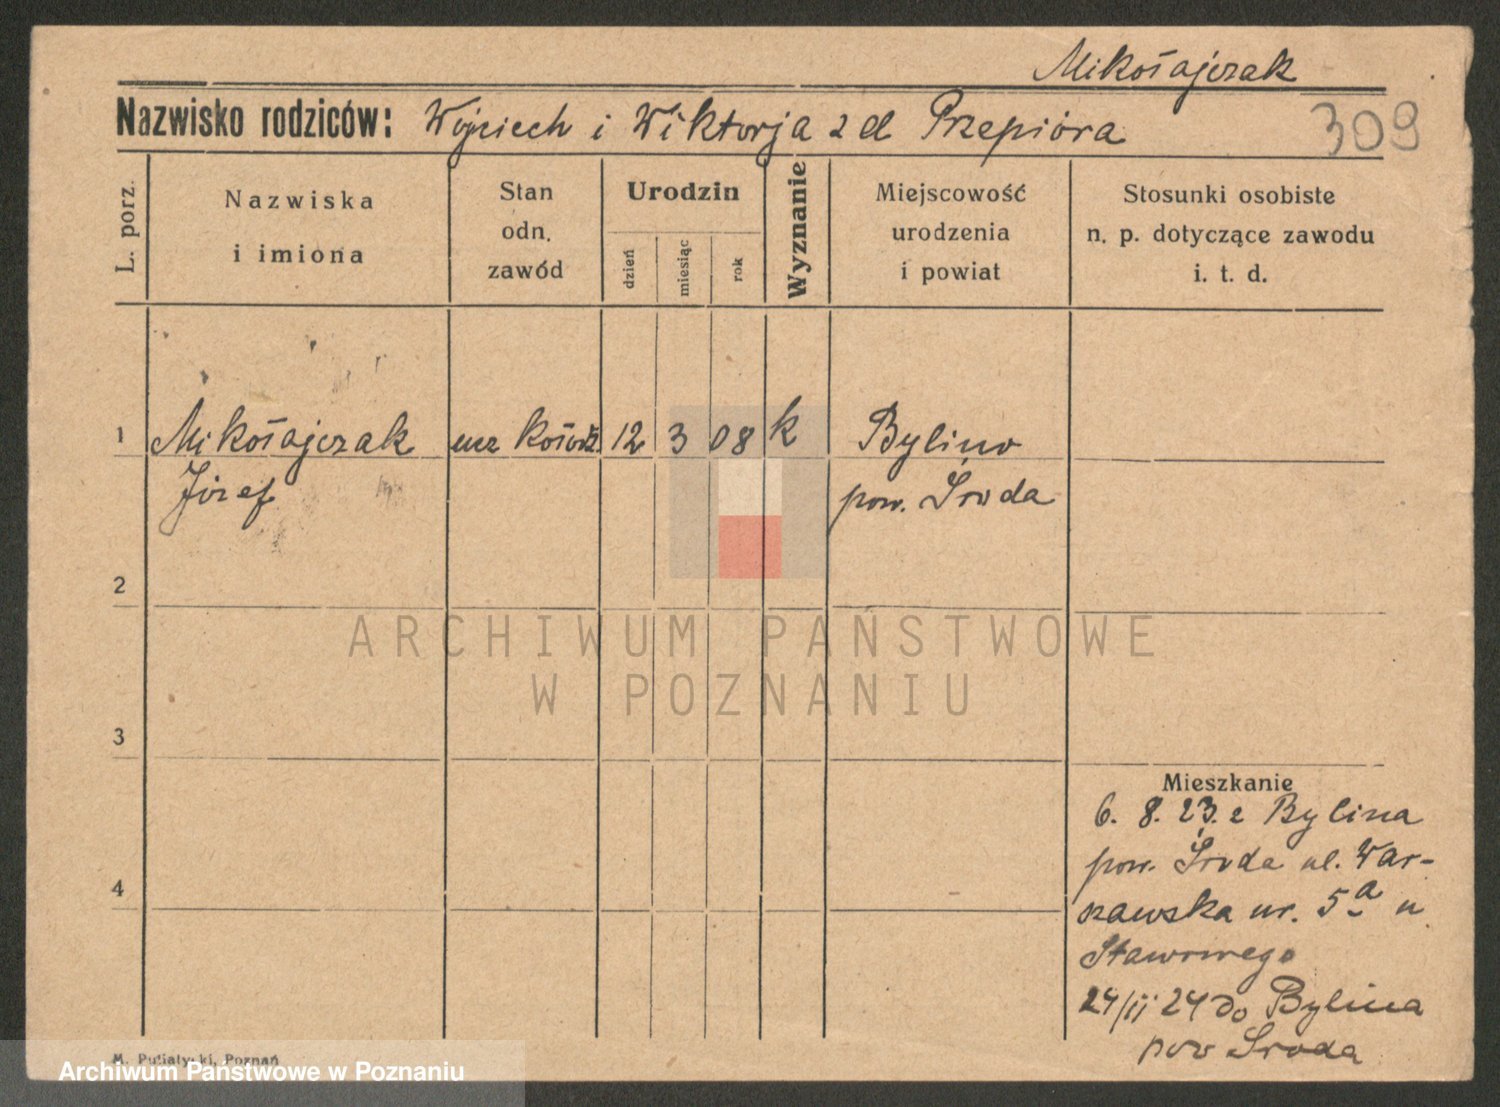 Mikołajczak
Nazwisko rodziców: Wojciech i Wiktorja z d Przepióra
309
L. porz.
Nazwiska
i imiona
Stan
odn.
zawód
Urodzin
dzień
miesiąc
rok
Wyznanie
Miejscowość
urodzenia
i powiat
Stosunki osobiste
n. p. dotyczące zawodu
i. t. d.
1 Mikołajczak ucz kołodz. 12 3 08 k Bylino
Józef pow. Środa
2
3
4
ARCHIWUM PAŃSTWOWE
W POZNANIU
Mieszkanie
6. 8. 23. z Bylina
pow. Środa ul. War-
szawska nr. 5a u
24/11 24 do Bylina
pow Środa
M. Putiatycki, Poznań
Archiwum Państwowe w Poznaniu